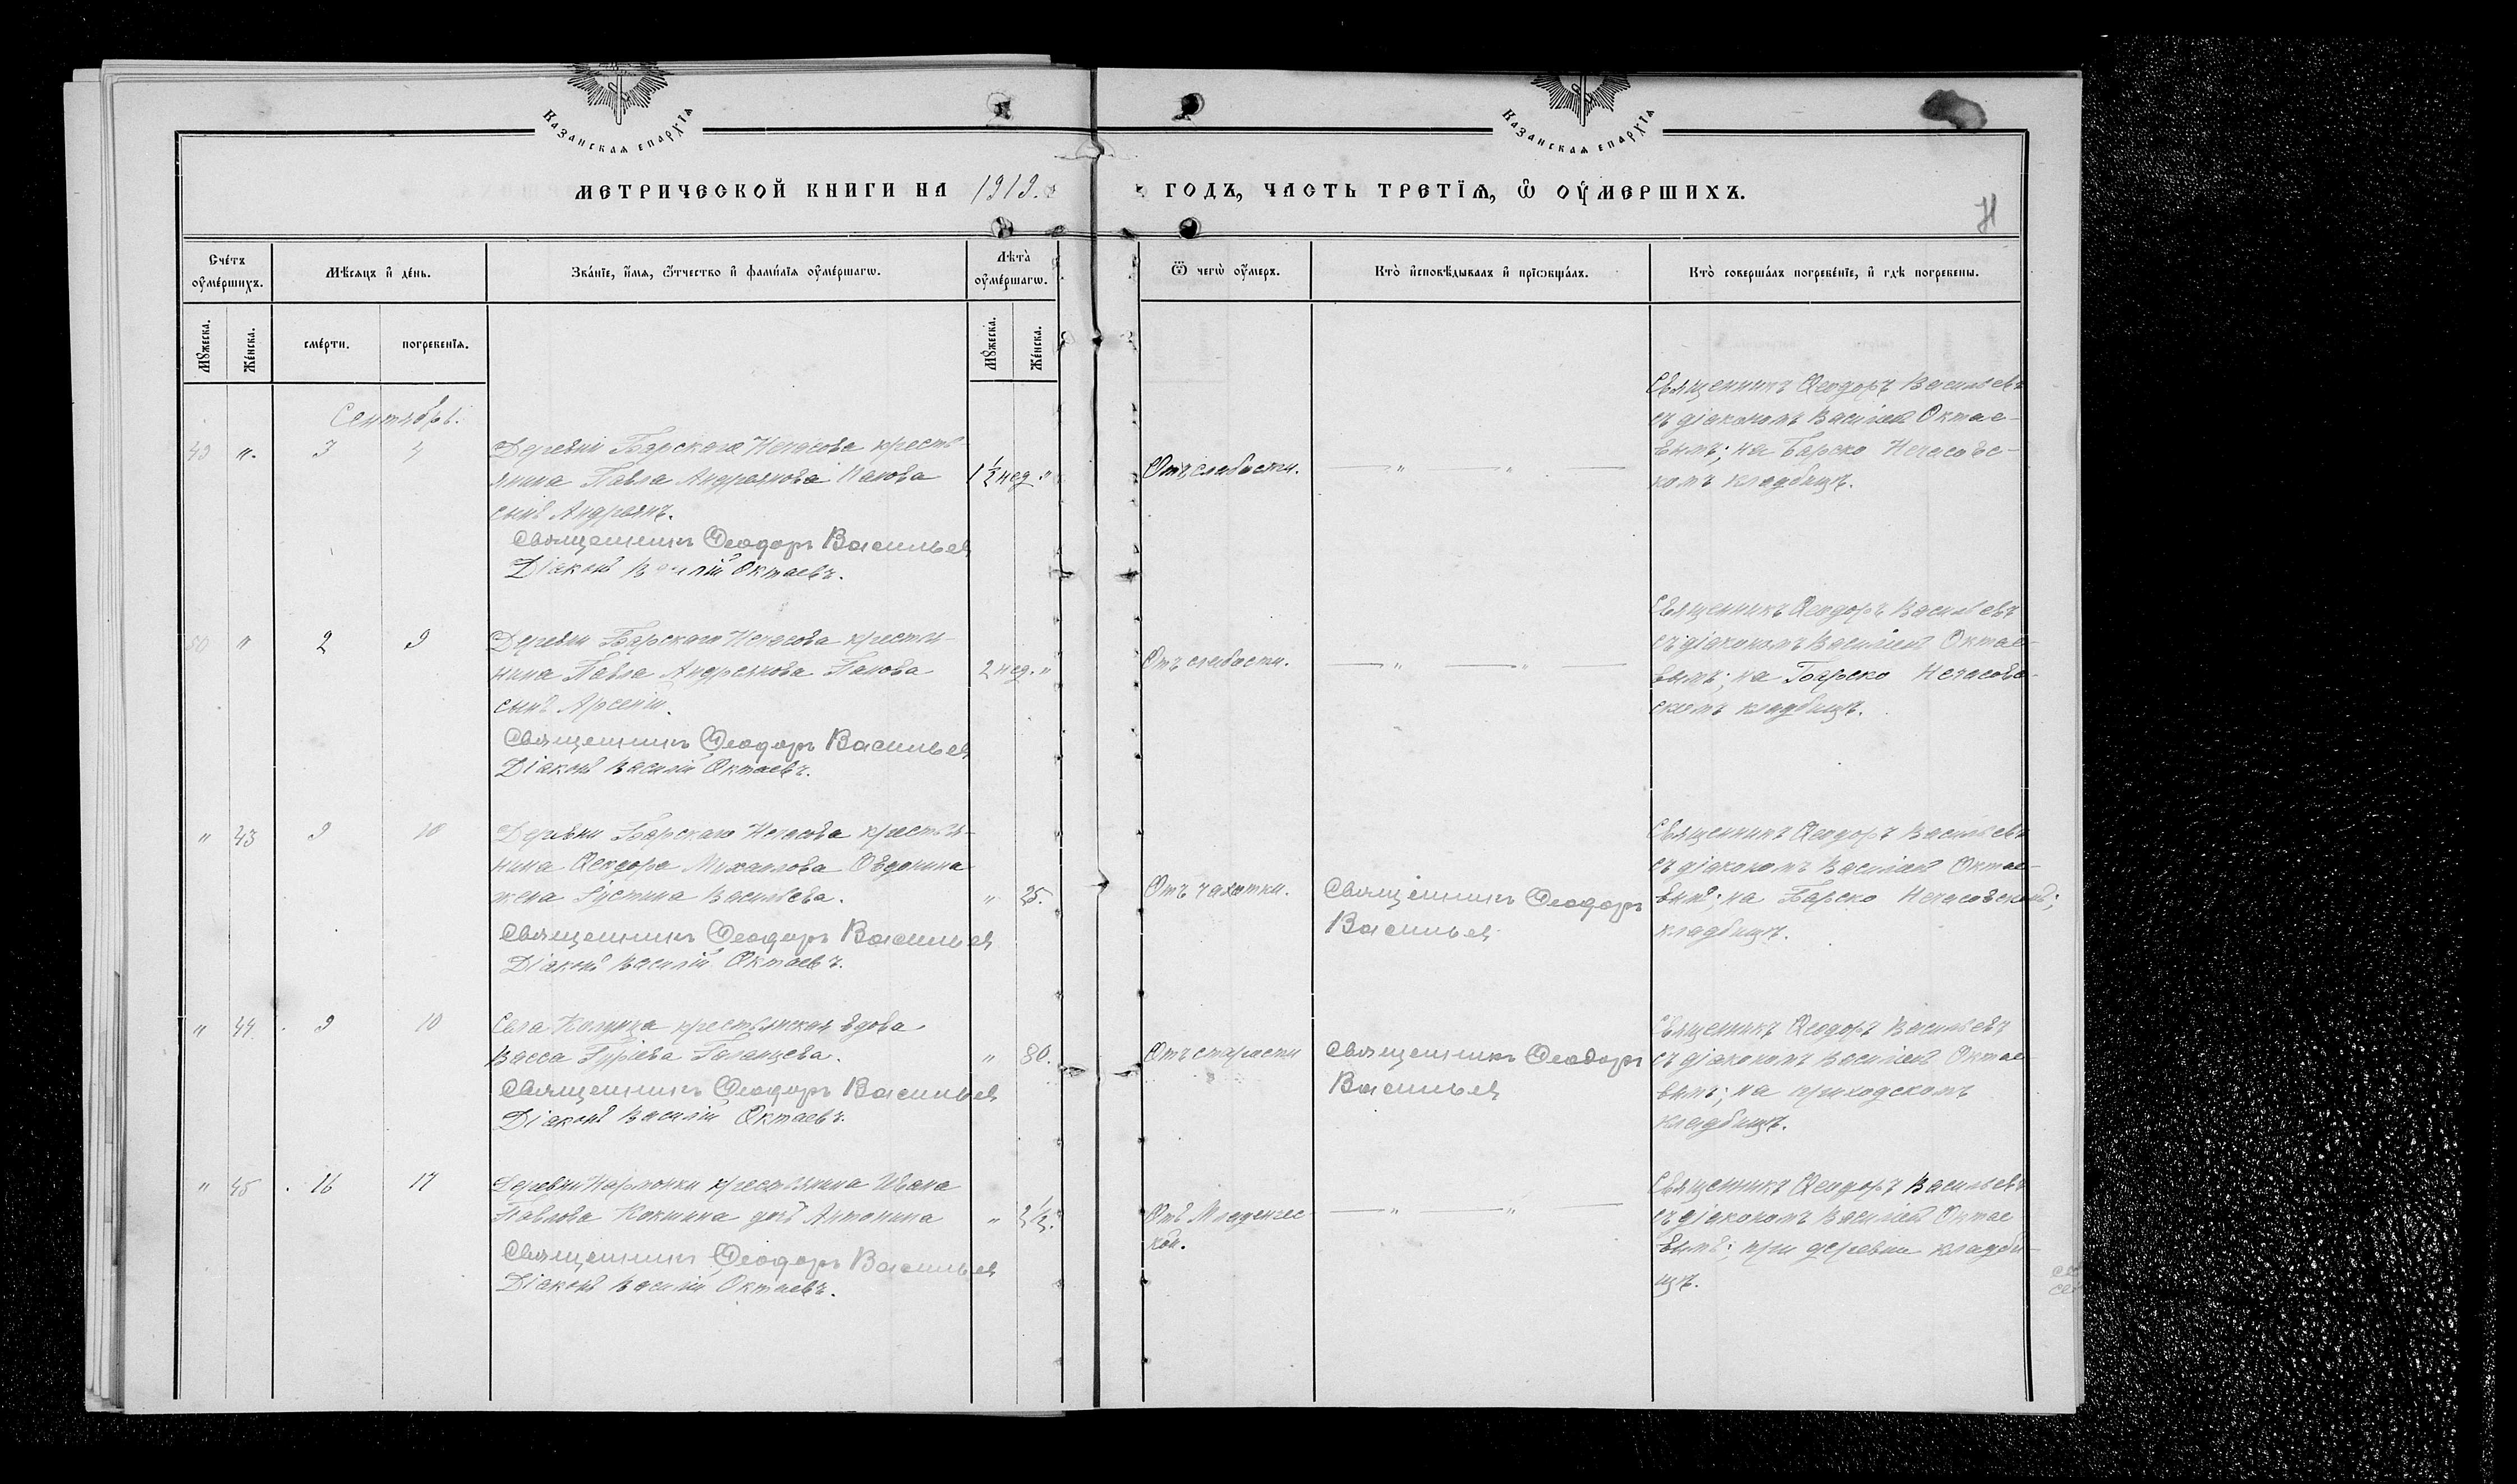 Казанская епархїѧ
Казанская епархїѧ
МЕТРИЧЕСКОЙ КНИГИ НА 1919.
ГОДЪ, ЧАСТЬ ТРЕТЇѦ, Ѿ ОУМЕРШИХЪ.
Н
Счéтъ оумéршихъ.
Мѣсяцъ и дéнь.
Звáнїе, и́мя, ѻ҆́тчество и фами́лїя оумéршагѡ.
Лѣтà оумéршагѡ.
Ѿ чегѡ̀ оу́меръ.
Ктò и҆сповѣ́дывалъ и прїѡбщáлъ.
Ктò совершáлъ погребéнїе, и гдѣ̀ погребены.
Мꙋжеска.
Же́нска.
смéрти.
погребенїѧ.
Мꙋжеска.
Же́нска.
Сентябрь.
49 ". 3 4
Деревни Барскаго Нечасова кресть-
янина Павла Андреянова Панова
сынъ Андреянъ.
Священникъ Ѳеодоръ Васильев
Дiаконъ Василiй Октаевъ.
1 ½ нед. "
Отъ слабости.
— " — " —
Священникъ Ѳеодоръ Васильевъ
съ дiакономъ Василiемъ Октае-
вымъ; на Барско Нечасовс-
комъ кладбищѣ.
50 " 2 9
Деревни Барскаго Нечасова крестья-
нина Павла Андреянова Панова
сынъ Арсенiй.
Священникъ Ѳеодоръ Васильев
Дiаконъ Василiй Октаевъ.
2 нед. "
Отъ слабости.
— " — " —
Священникъ Ѳеодоръ Васильевъ
съ дiакономъ Василiемъ Октае-
вымъ; на Барско Нечасово-
скомъ кладбищѣ.
" 43 9 10
Деревни Барскаго Нечасова крестья-
нина Ѳеодора Михаилова
жена Iустина Васильева.
Священникъ Ѳеодоръ Васильев
Дiаконъ Василiй Октаевъ.
" 25.
Отъ чахотки.
Священникъ Ѳеодоръ
Васильев
Священникъ Ѳеодоръ Васильевъ
съ дiакономъ Василiемъ Октае-
вымъ; на Барско Нечасовскомъ;
кладбищѣ.
" 44 9 10
Села крестьянская вдова
Васса Гурiева
Священникъ Ѳеодоръ Васильев
Дiаконъ Василiй Октаевъ.
" 80.
Отъ старости
Священникъ Ѳеодоръ
Васильев
Священникъ Ѳеодоръ Васильевъ
съ дiакономъ Василiемъ Октае-
вымъ; на приходскомъ
кладбищѣ.
" 45 16 17
Деревни крестьянина Ивана
Павлова Кокшина дочь Антонина
Священникъ Ѳеодоръ Васильев
Дiаконъ Василiй Октаевъ.
" 2 ½.
Отъ Младенчес
кой.
— " — " —
Священникъ Ѳеодоръ Васильевъ
съ дiакономъ Василiемъ Октае
вымъ; при деревни кладби-
щѣ.